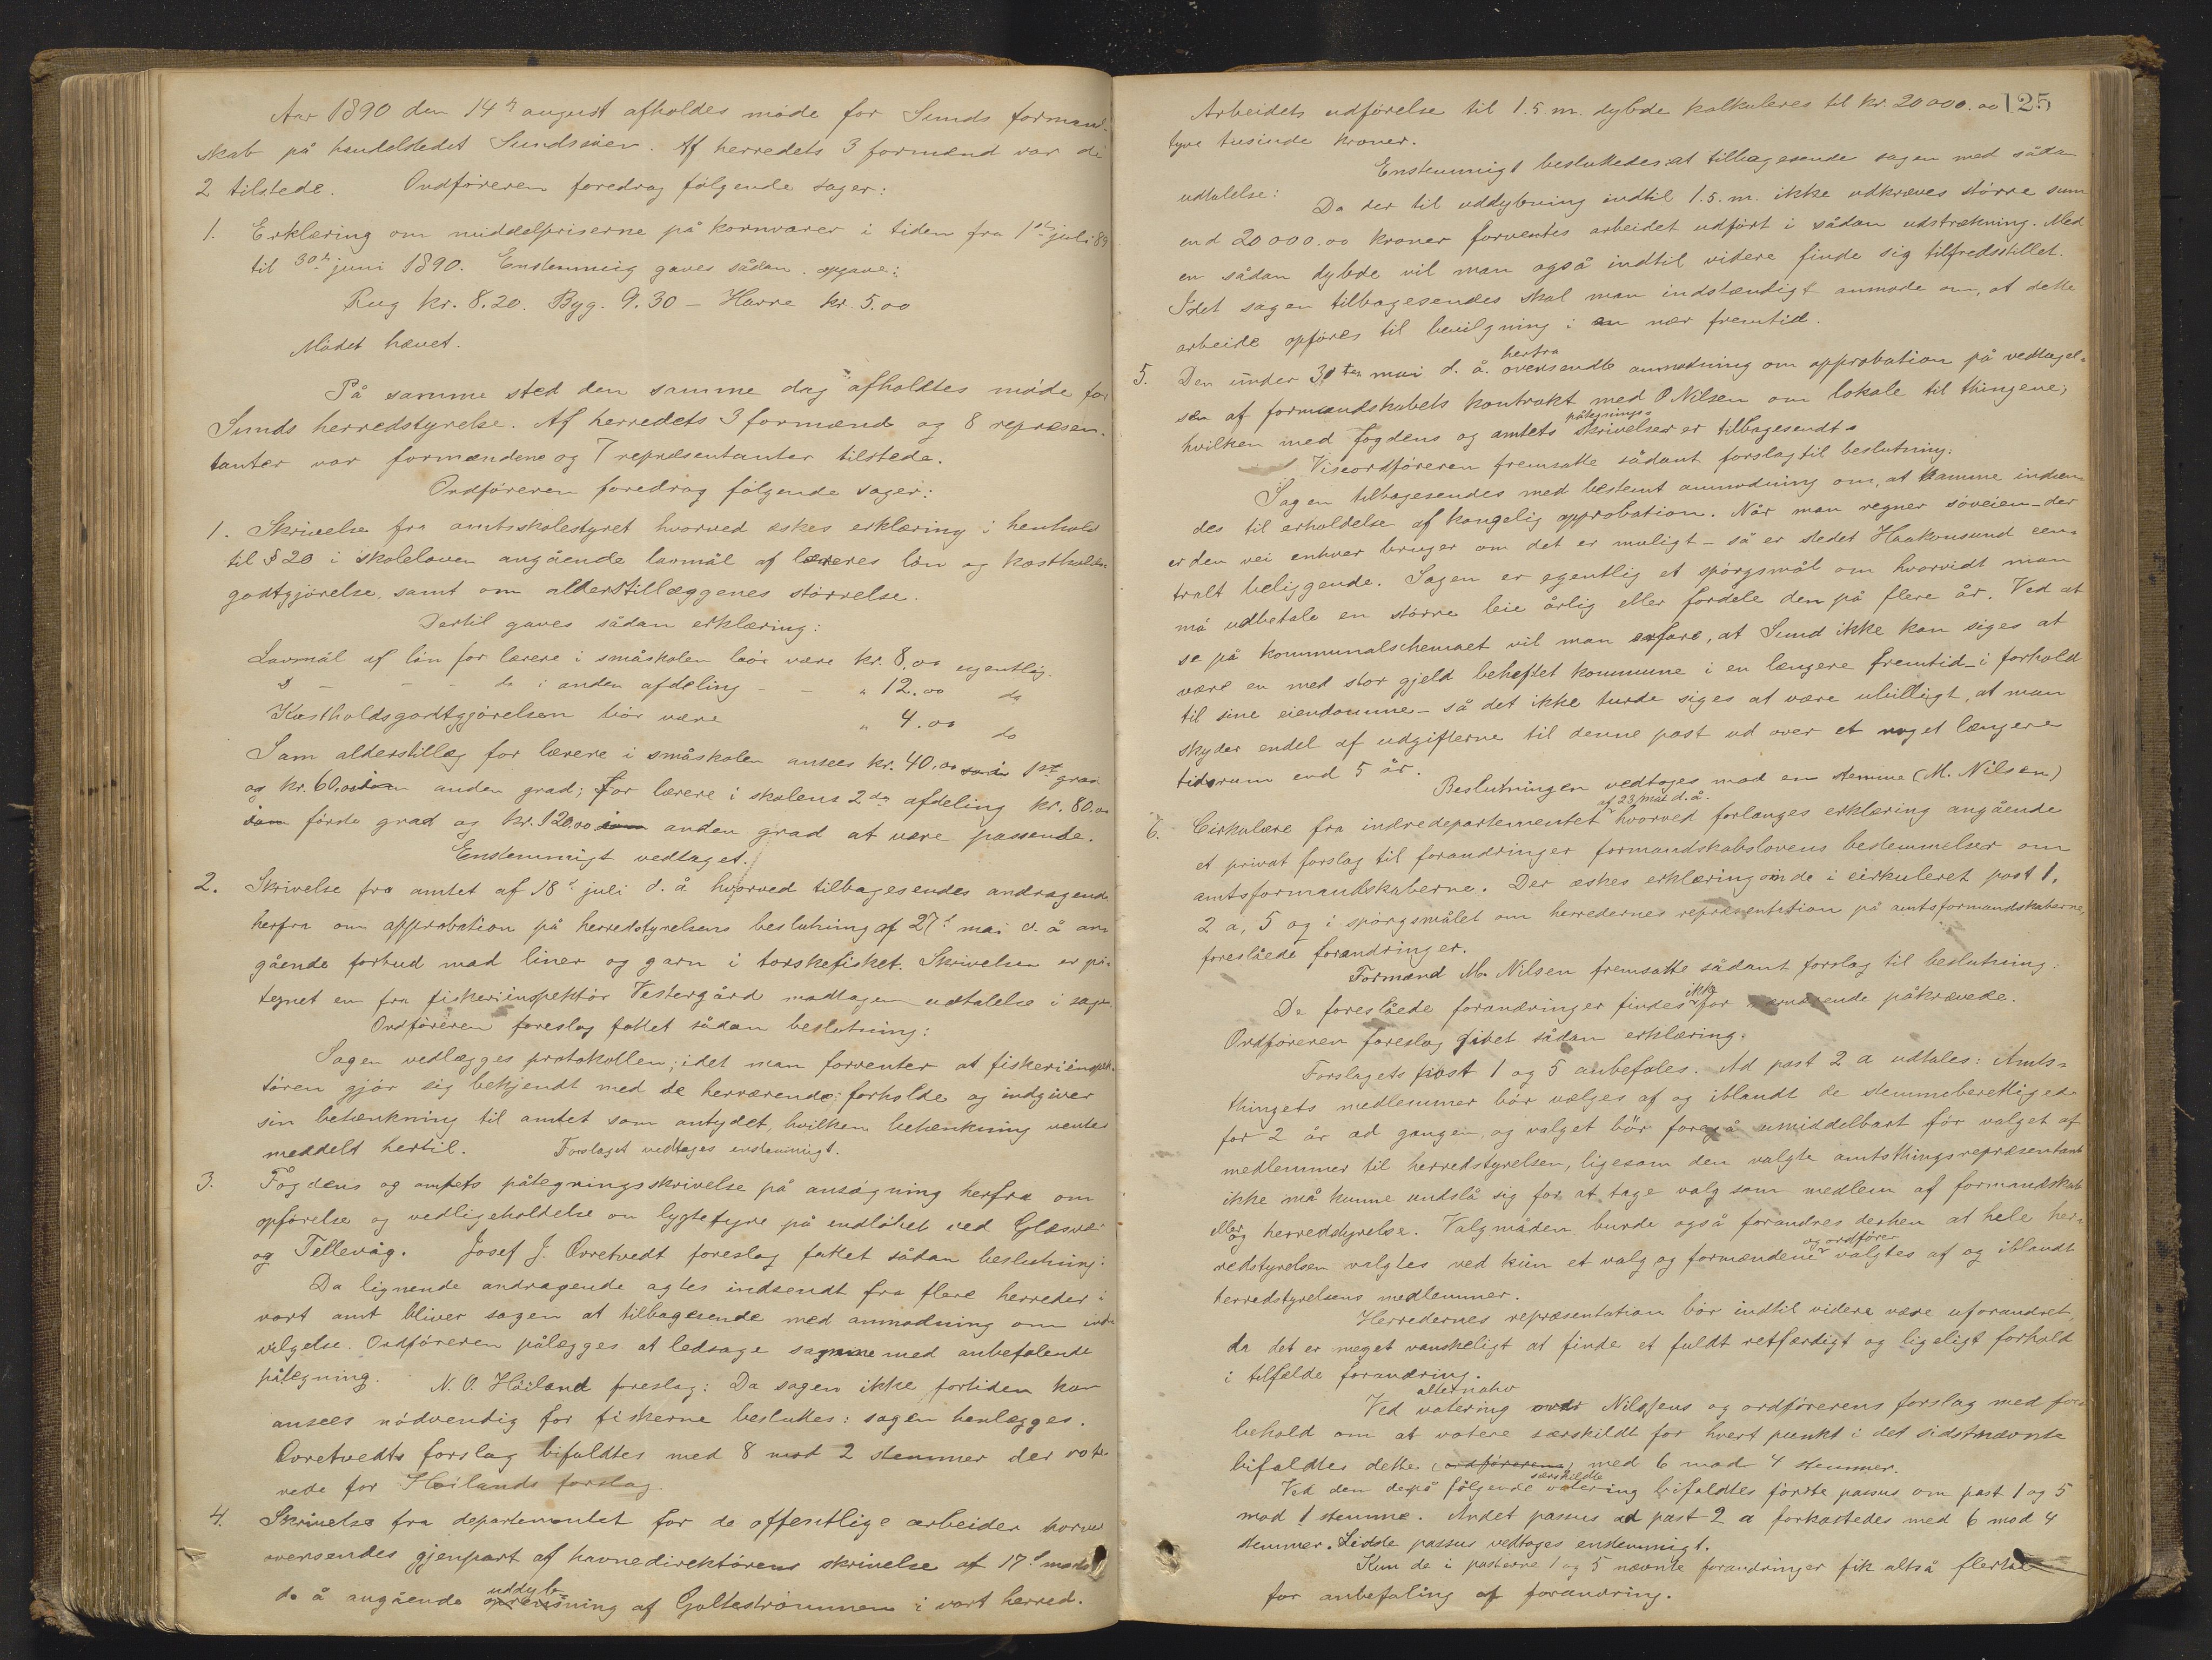 Aar 1890 den 14de august afholdes møde for Sunds formand-
skab på handelstedet Sundsøien. Af herredets 3 formænd var de
2 tilstede. Ordføreren foredrog følgende sager:
1. Erklæring om middelpriserne på kornvarer i tiden fra 1ste juli 89
til 30te juni 1890. Enstemmig gaves sådan opgave:
Rug kr. 8.20. Byg. 9.30 – Havre kr. 5.00
Mødet hævet.
På samme sted den samme dag afholdtes møde for
Sunds herredstyrelse. Af herredets 3 formænd og 8 repræsen-
tanter var formændene og 7 repræsentanter tilstede.
Ordføreren foredrog følgende sager:
1. Skrivelse fra amtsskolestyret hvorved æskes erklæring i henhold
til § 20 i skoleloven angående lavmål af læreres løn og kostholds-
godtgjørelse, samt om alderstillæggenes størrelse.
Dertil gaves sådan erklæring:
Lavmål af løn for lærere i småskolen bør være kr. 8,00 ugentlig.
" – – – do i anden afdeling – – " 12.00 do
Kostholdsgodtgjørelsen bör være " 4.00 do
Som alderstillæg for lærere i småskolen ansees kr. 40,00 1ste grad
og kr. 60,00 anden grad; for lærere i skolens 2den afdeling kr. 80.00
som første grad og kr. 120.00 som anden grad at være passende.
Enstemmigt vedtaget.
2. Skrivelse fra amtet af 18de juli d. å hvorved tilbagesendes andragende
herfra om approbation på herredstyrelsens beslutning af 27de mai d. å an-
gående forbud mod liner og garn i torskefisket. Skrivelsen er på-
tegnet en fra fiskeriinspektør Vestergård modtagen udtalelse i sagen.
Ordføreren foreslog fattet sådan beslutning:
Sagen vedlægges protokollen, idet man forventer at fiskeriinspek-
tøren gjør sig bekjendt med de herværende forholde og indgiver
sin betænkning til amtet som antydet, hvilken betænkning ventes
meddelt hertil. Forslaget vedtages enstemmigt.
3. Fogdens og amtets påtegningsskrivelse på ansøgning herfra om
opførelse og vedligeholdelse av lygtefyre på indløbet ved Glæsvær
og Tellevåg. Josef J. Ovretvedt foreslog fattet sådan beslutning:
Da lignende andragende agtes indsendt fra flere herreder i
vort amt bliver sagen at tilbagesende med anmodning om ind-
vilgelse. Ordføreren pålægges at ledsage sagerne med anbefalende
påtegning. N. O. Høiland foreslog: Da sagen ikke fortiden kan
ansees nødvendig for fiskerne besluttes: sagen henlægges.
Ovretvedts forslag bifaldtes med 8 mod 2 stemmer der vote-
rede for Høilands forslag.
4. Skrivelse fra departementet for de offentlige arbeider hvorved
oversendes gjenpart af havnedirektørens skrivelse af 17de
d. å angående uddybning af Goltestrømmen i vort herred.
125
Arbeidets udførelse til 1.5 m. dybde kalkuleres til kr. 20000.00
tyve tusinde kroner.
Enstemmigt besluttedes: at tilbagesende sagen med sådan
udtalelse: Da der til uddybning indtil 1.5. m. ikke udkræves større sum
end 20000.00 kroner forventes arbeidet udført i sådan udstrækning. Med
en sådan dybde vil man også indtil videre finde sig tilfredsstillet.
Idet sagen tilbagesendes skal man indstændigt anmode om, at dette
arbeide opføres til bevilgning i en nær fremtid.
5. Den under 31ten mai d. å. herfra oversendte anmodning om approbation på vedtagel-
sen af formandskabets kontrakt med O. Nilsen om lokale til thingene,
hvilken med fogdens og amtets påtegnings-skrivelser er tilbagesendt.
Viseordføreren fremsatte sådant forslag til beslutning:
Sagen tilbagesendes med bestemt anmodning om, at samme indsen-
des til erholdelse af kongelig approbation. Når man regner søveien – der
er den vei enhver bruger om det er muligt – så er stedet Haakonsund cen-
tralt beliggende. Sagen er egentlig et spørgsmål om hvorvidt man
må udbetale en større leie årlig eller fordele den på flere år. Ved at
se på kommunalschemaet vil man erfare, at Sund ikke kan siges at
være en med stor gjeld beheftet kommune i en længere fremtid – i forhold
til sine eiendomme – så det ikke turde siges at være ubilligt, at man
skyder endel af udgifterne til denne post ud over et noget længere
tidsrum end 5 år. Beslutningen vedtoges mod en stemme (M. Nilsen)
6. Cirkulære fra indredepartementet af 23 mai d. å. hvorved forlanges erklæring angående
et privat forslag til forandringer formandskabslovens bestemmelser om
amtsformandskaberne. Der æskes erklæring om de i cirkuleret post 1,
2 a, 5 og i spørgsmålet om herredernes repræsentation på amtsformandskaberne,
foreslåede forandringer.
Formand M. Nilsen fremsatte sådant forslag til beslutning:
De foreslåede forandringer findes ikke for nærværende påkrævede.
Ordføreren foreslog givet sådan erklæring:
Forslagets post 1 og 5 anbefales. Ad post 2 a udtales: Amts-
thingets medlemmer bør vælges af og iblandt de stemmeberettigede
for 2 år ad gangen, og valget bör foregå umiddelbart før valget af
medlemmer til herredstyrelsen, ligesom den valgte amtsthingsrepræsentant
ikke må kunne undslå sig for at tage valg som medlem af formandskab
eller og herredstyrelse. Valgmåden burde også forandres derhen at hele her-
redstyrelsen valgtes ved kun et valg og formændene og ordfører valgtes af og iblandt
herredstyrelsens medlemmer.
Herredernes repræsentation bör indtil videre være uforandret,
da det er meget vanskeligt at finde et fuldt retfærdigt og ligeligt forhold
i tilfælde forandring.
Ved alternativ votering over Nilssens og ordførerens forslag med for-
behold om at votere særskildt for hvert punkt i det sidstnævnte
bifaldtes dette (ordførerens) med 6 mod 4 stemmer.
Ved den derpå følgende særskildte votering bifaldtes første passus om post 1 og 5
mod 1 stemme. Andet passus ad post 2 a forkastedes med 6 mod 4
stemmer. Sidste passus vedtoges enstemmigt.
Kun de i posterne 1 og 5 nævnte forandringer fik altså flertal
for anbefaling af forandring.